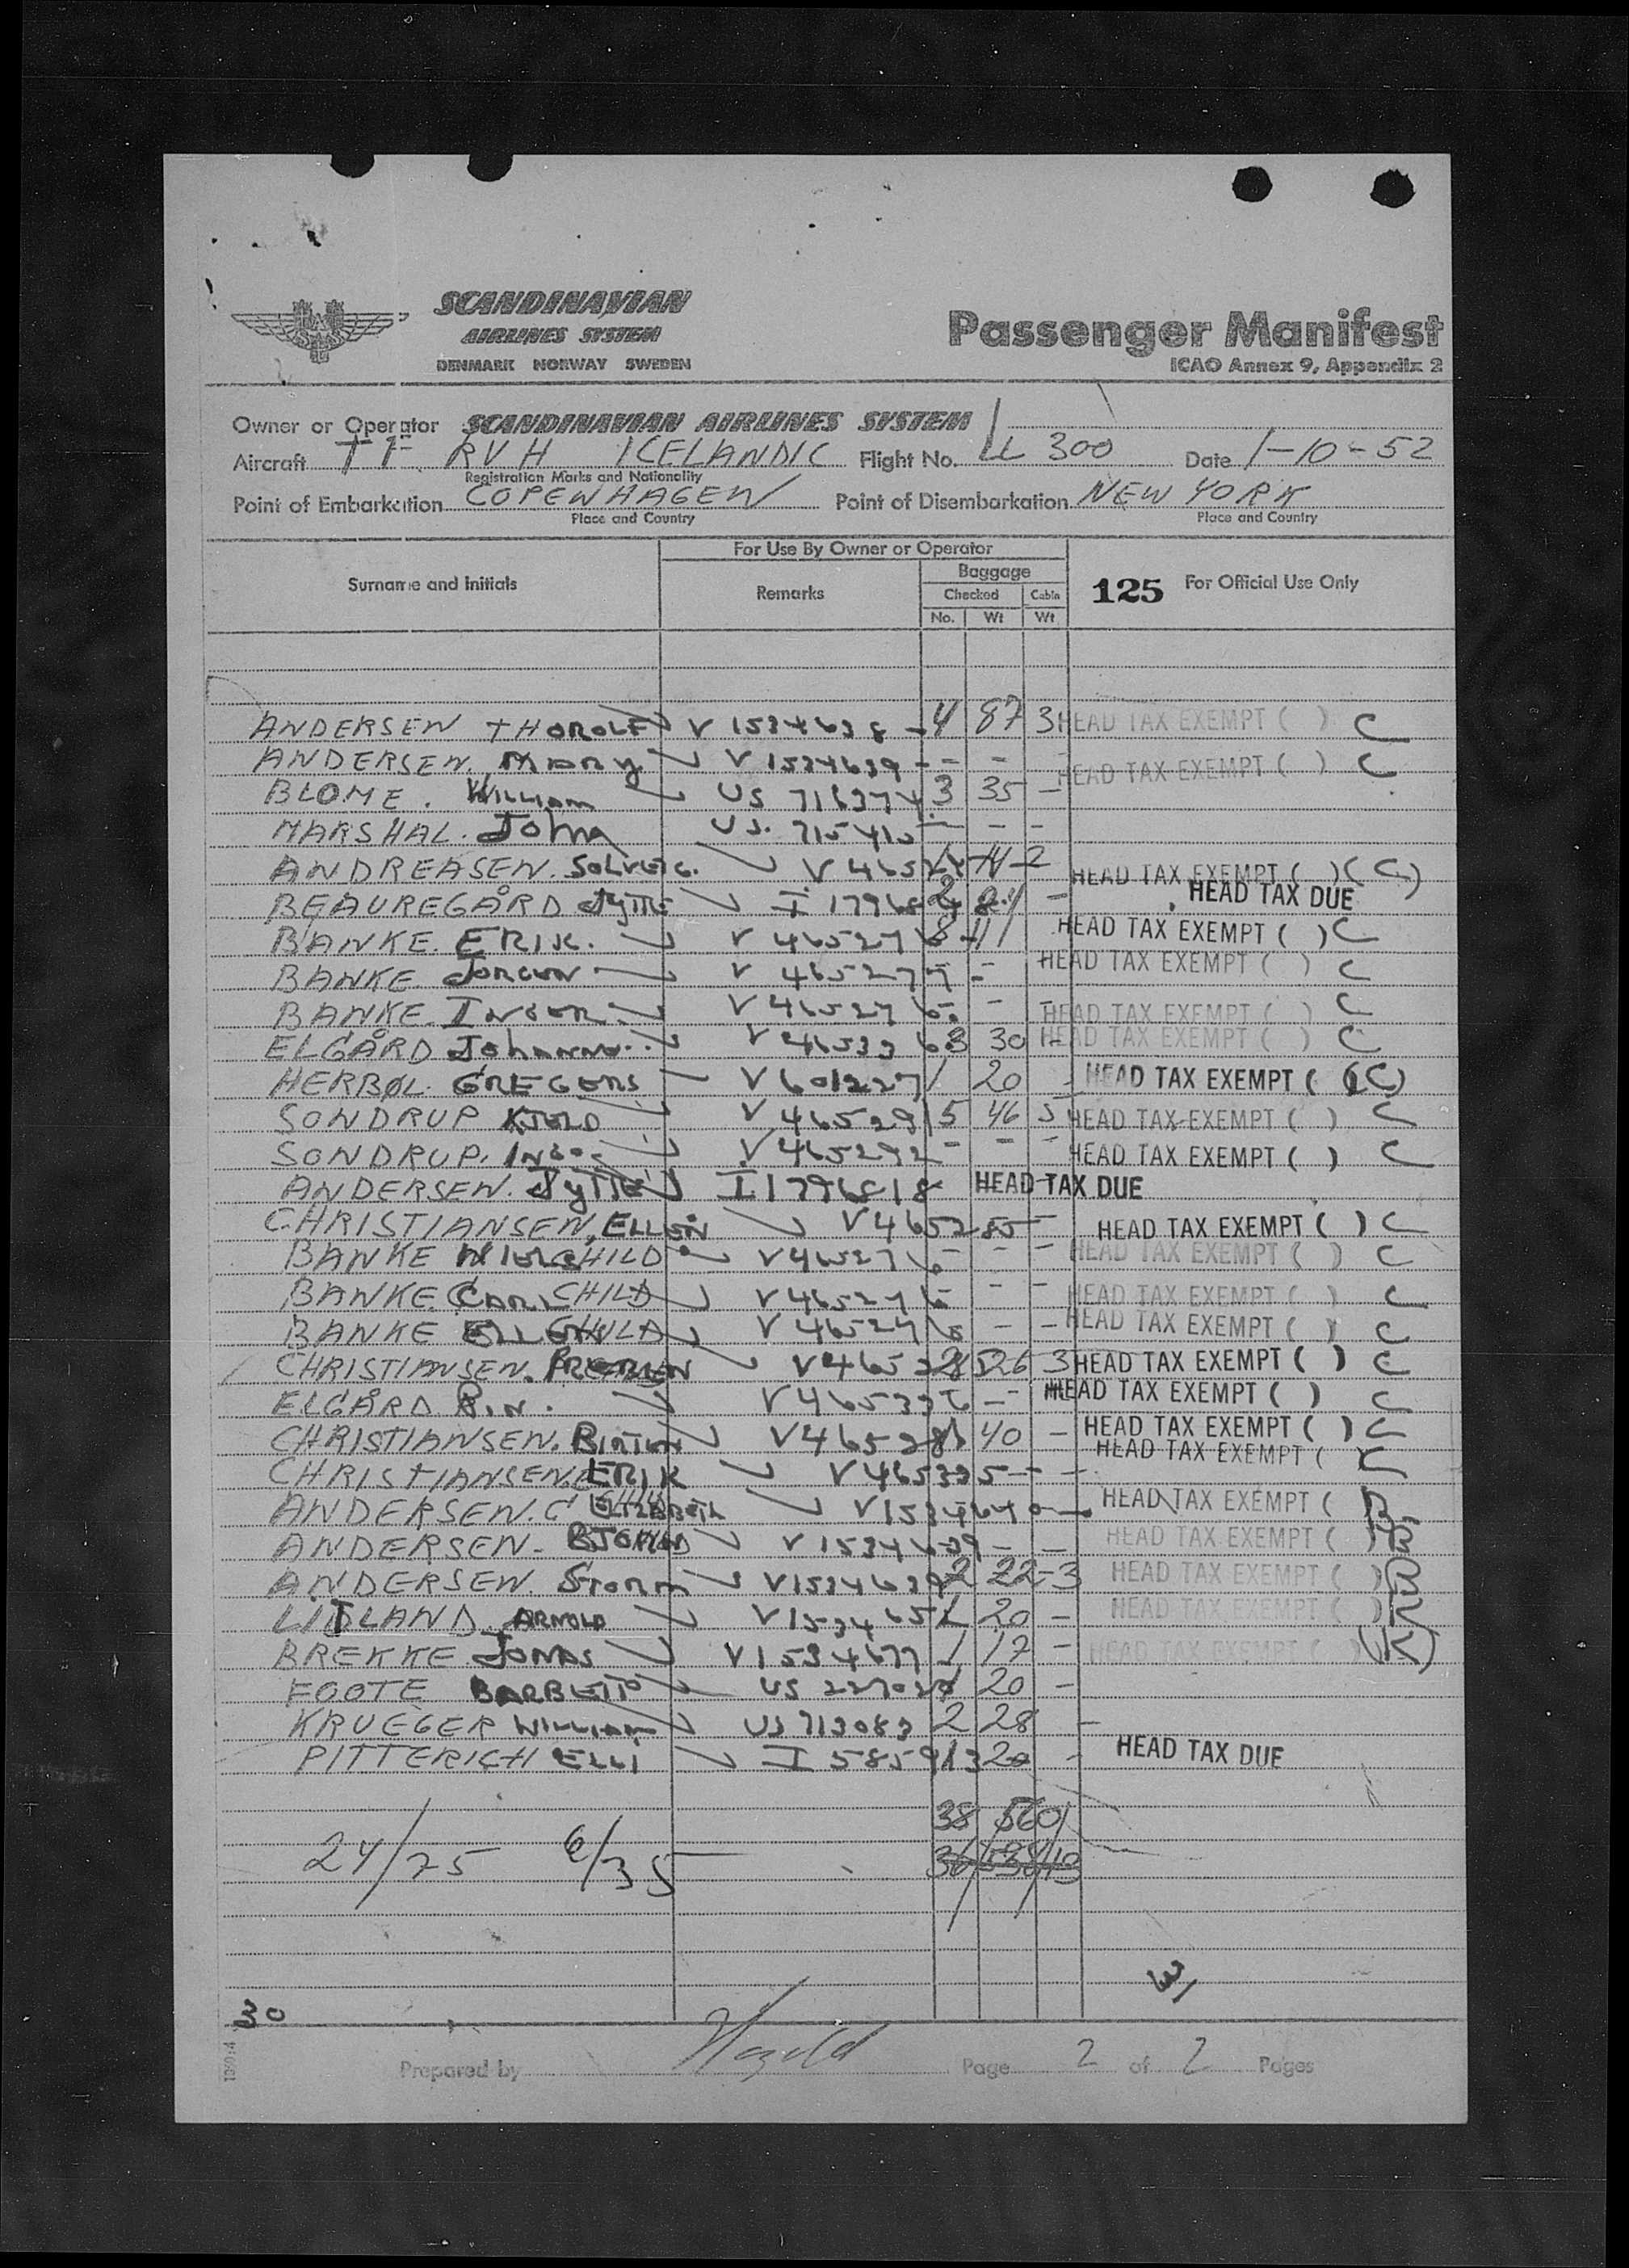 SCANDINAVIAN
AIRLINES SYSTEM
DENMARK NORWAY SWEDEN
Passenger Manifest
ICAO Annex 9, Appendix 2
Owner or Operator SCANDINAVIAN AIRLINES SYSTEM
Aircraft TF RVH ICELANDIC Flight No. LL 300 Date 1-10-52
Registration Marks and Nationality
Point of Embarkation COPENHAGEN Point of Disembarkation NEW YORK
Place and Country Place and Country
For Use By Owner or Operator
Surname and Initials Remarks Baggage 125 For Official Use Only
Checked Cabin
No. Wt Wt
ANDERSEN THOROLF V 1534638 - 4 87 3 HEAD TAX EXEMPT ( ) C
ANDERSEN. MARY V 1534639 - - - HEAD TAX EXEMPT ( ) C
BLOME. WILLIAM US 716374 3 35 -
MARSHAL. John US. 715415 - - -
ANDREASEN. SOLVEIG. V 465 14 2 HEAD TAX EXEMPT ( ) (C)
BEAUREGÅRD JYTTE I 1796 - HEAD TAX DUE
BANKE. ERIK. V 465276 HEAD TAX EXEMPT ( ) C
BANKE JORGEN V 465277 - HEAD TAX EXEMPT ( ) C
BANKE. INGER V 465276 - - HEAD TAX EXEMPT ( ) C
ELGÅRD Johanne. V 465336 3 30 HEAD TAX EXEMPT ( ) C
HERBØL. GREGERS V 601227 1 20 - HEAD TAX EXEMPT ( (C)
SONDRUP KJELD V 465291 5 46 5 HEAD TAX EXEMPT ( ) C
SONDRUP. V 465292 - - - HEAD TAX EXEMPT ( ) C
ANDERSEN. JYTTE I 1796818 HEAD TAX DUE
CHRISTIANSEN, ELLEN V 465285 - HEAD TAX EXEMPT ( ) C
BANKE CHILD V 465276 - - - HEAD TAX EXEMPT ( ) C
BANKE CARL CHILD V 465276 - - HEAD TAX EXEMPT ( ) C
BANKE CHILD V 465276 - - HEAD TAX EXEMPT ( ) C
CHRISTIANSEN. PREBEN V 465 26 3 HEAD TAX EXEMPT ( ) C
ELGÅRD V 465336 - HEAD TAX EXEMPT ( ) C
CHRISTIANSEN. V 46528 40 - HEAD TAX EXEMPT ( ) C
CHRISTIANSEN. ERIK V 465335 - - - HEAD TAX EXEMPT ( C
ANDERSEN. C ELIZABETH V 1534640 - HEAD TAX EXEMPT ( B
ANDERSEN - V 1534639 - - HEAD TAX EXEMPT ( ) B
ANDERSEN. STORM V 1534639 2 22 - 3 HEAD TAX EXEMPT ( ) B
LIDLAND ARNOLD V 1534651 20 - HEAD TAX EXEMPT ( ) K
BREKKE JONAS V 1534677 1 17 - HEAD TAX EXEMPT ( ) (K)
FOOTE US 20 -
KRUEGER WILLIAM US 713083 2 28 -
PITTERICH ELLI I 5859 20 - HEAD TAX DUE
38 560
24/75 6/35 36
30
Prepared by Page 2 of 2 Pages